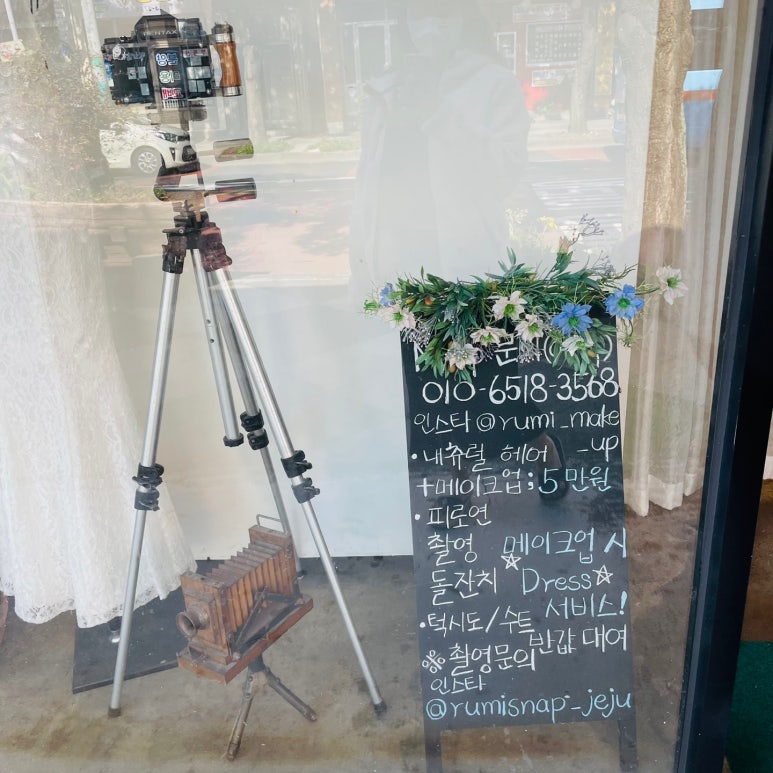 PENTAX
문
010-6518-3568
인스타 @rumi_make
-up
• 내츄럴 헤어
+메이크업 ; 5만원
• 피로연
촬영 메이크업 시
돌잔치 ☆Dress☆
서비스!
• 턱시도/수트 반값 대여
※ 촬영문의
인스타
@rumisnap_jeju